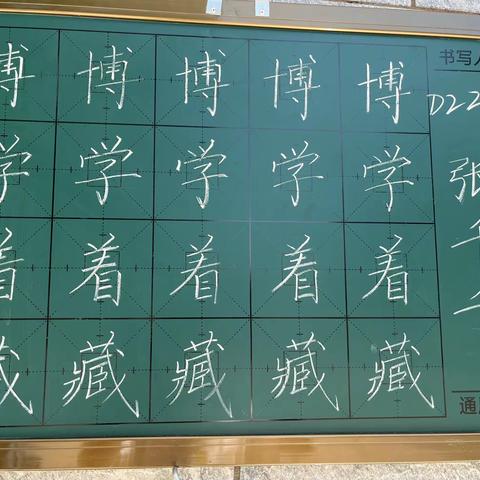 博 博 博 博 博
学 学 学 学 学
着 着 着 着 着
藏 藏 藏 藏 藏
书写人
D22
张
通用